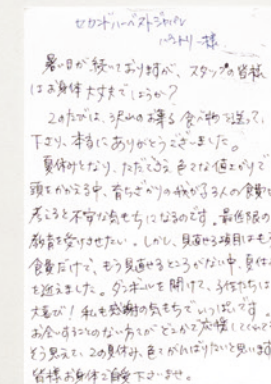 セカンドハーベストジャパン
パントリー様
暑い日が続いておりますが、スタッフの皆様
はお身体大丈夫でしょうか?
この度は、沢山のお米る食べ物を送って
下さり、本当にありがとうございました。
夏休みとなり、ただでさえ色々な値上がりで
頭をかかえる中、育ちざかりの我が子3人の食費を
考えると不安な気もちになるのです。最低限の
教育を受けさせたい。しかし、見直せる項目はもう
食費だけで、もう見直せるところがない中、夏休み
を迎えました。ダンボールを開けて、子供たちは
大喜び!私も感謝の気もちでいっぱいです。
お会いすることのない方々がどこかで応援してくれてる
そう思えて、この夏休み、色々がんばりたいと思います
皆様お身体ご自愛下さいませ。